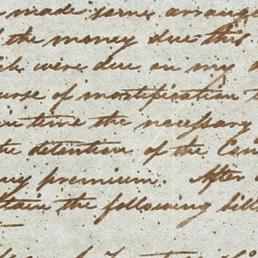 made some arrange
the money due this
were due on my
of mortification
time the necessary
the detention of the Com
my premium. After
the following bill